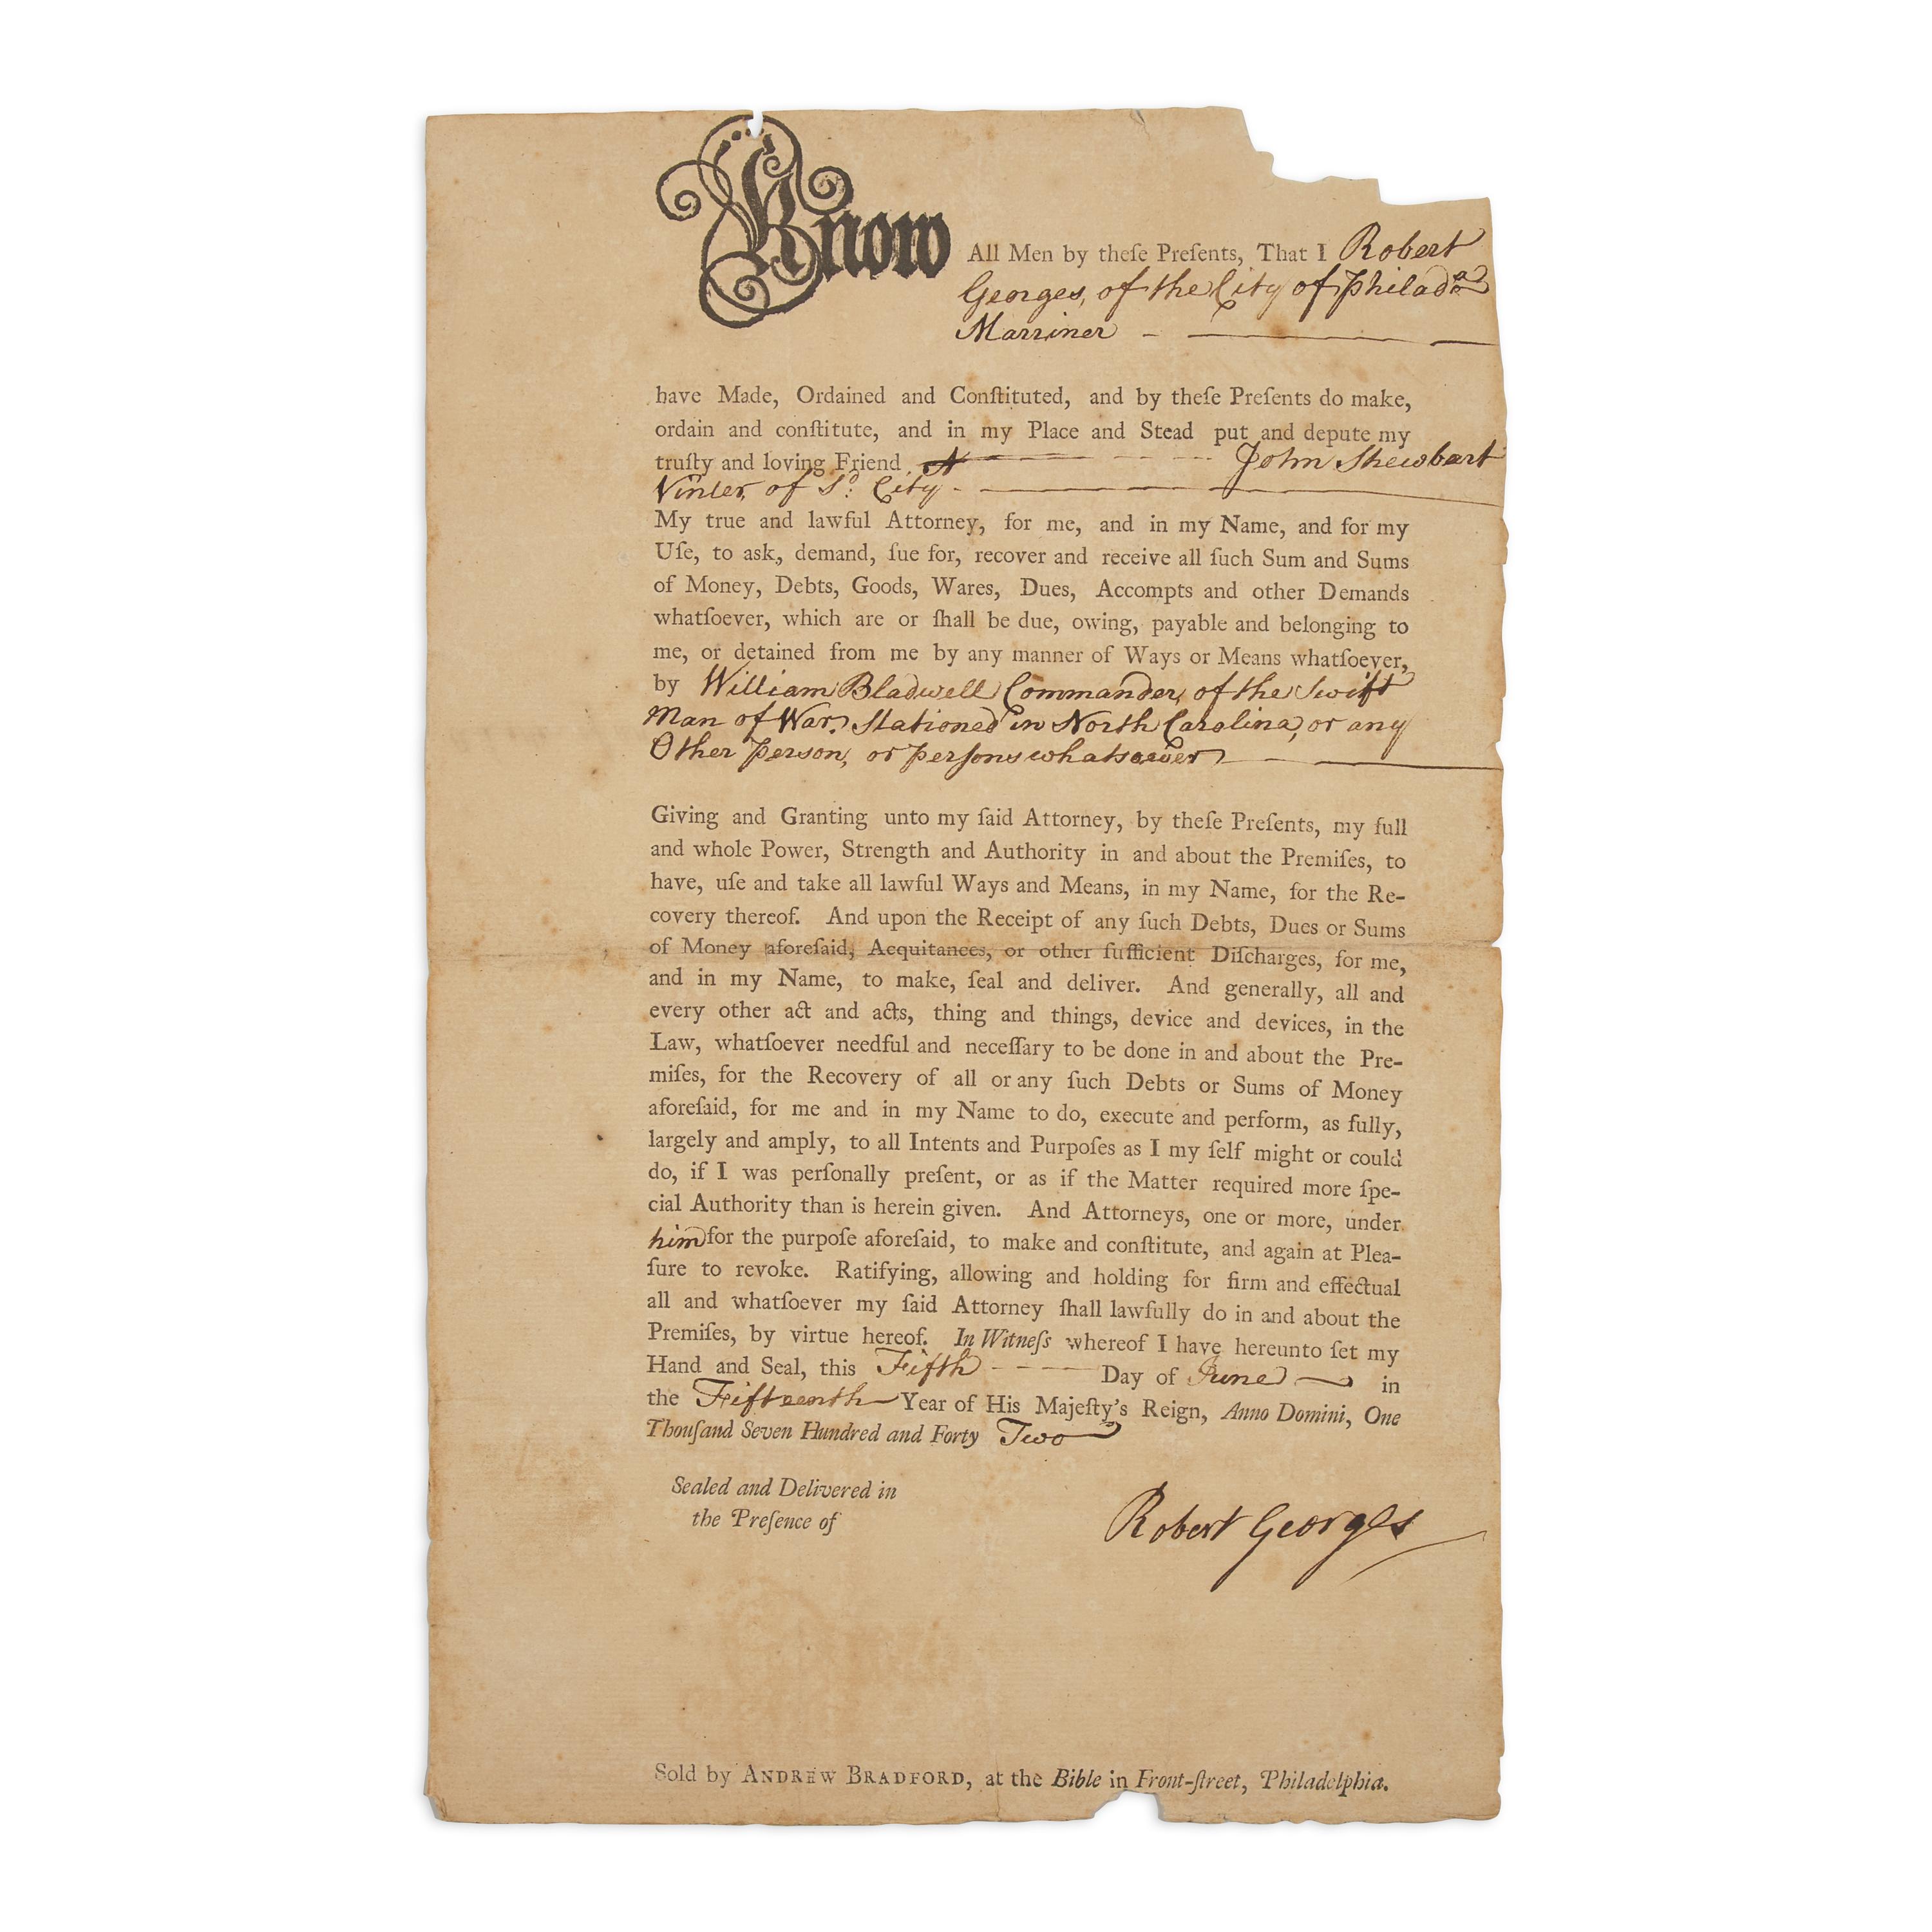 Know All Men by theſe Preſents, That I Robert
Georges, of the City of Philada
Marriner
have Made, Ordained and Conſtituted, and by theſe Preſents do make,
ordain and conſtitute, and in my Place and Stead put and depute my
truſty and loving Friend John Shewbart
Vintler, of Sd: City
My true and lawful Attorney, for me, and in my Name, and for my
Uſe, to ask, demand, ſue for, recover and receive all ſuch Sum and Sums
of Money, Debts, Goods, Wares, Dues, Accompts and other Demands
whatſoever, which are or ſhall be due, owing, payable and belonging to
me, or detained from me by any manner of Ways or Means whatſoever,
by William Bladwell Commander, of the Swift
Man of War, Stationed in North Carolina, or any
Other person, or perſons whatsoever
Giving and Granting unto my ſaid Attorney, by theſe Preſents, my full
and whole Power, Strength and Authority in and about the Premiſes, to
have, uſe and take all lawful Ways and Means, in my Name, for the Re-
covery thereof. And upon the Receipt of any ſuch Debts, Dues or Sums
of Money aforeſaid, Acquitances, or other ſufficient Diſcharges, for me,
and in my Name, to make, ſeal and deliver. And generally, all and
every other act and acts, thing and things, device and devices, in the
Law, whatſoever needful and neceſſary to be done in and about the Pre-
miſes, for the Recovery of all or any ſuch Debts or Sums of Money
aforeſaid, for me and in my Name to do, execute and perform, as fully,
largely and amply, to all Intents and Purpoſes as I my ſelf might or could
do, if I was perſonally preſent, or as if the Matter required more ſpe-
cial Authority than is herein given. And Attorneys, one or more, under
him for the purpoſe aforeſaid, to make and conſtitute, and again at Plea-
ſure to revoke. Ratifying, allowing and holding for firm and effectual
all and whatſoever my ſaid Attorney ſhall lawfully do in and about the
Premiſes, by virtue hereof. In Witneſs whereof I have hereunto ſet my
Hand and Seal, this Fifth Day of June in
the Fifteenth Year of His Majeſty's Reign, Anno Domini, One
Thouſand Seven Hundred and Forty Two
Sealed and Delivered in
the Preſence of
Robert Georges
Sold by ANDREW BRADFORD, at the Bible in Front-ſtreet, Philadelphia.